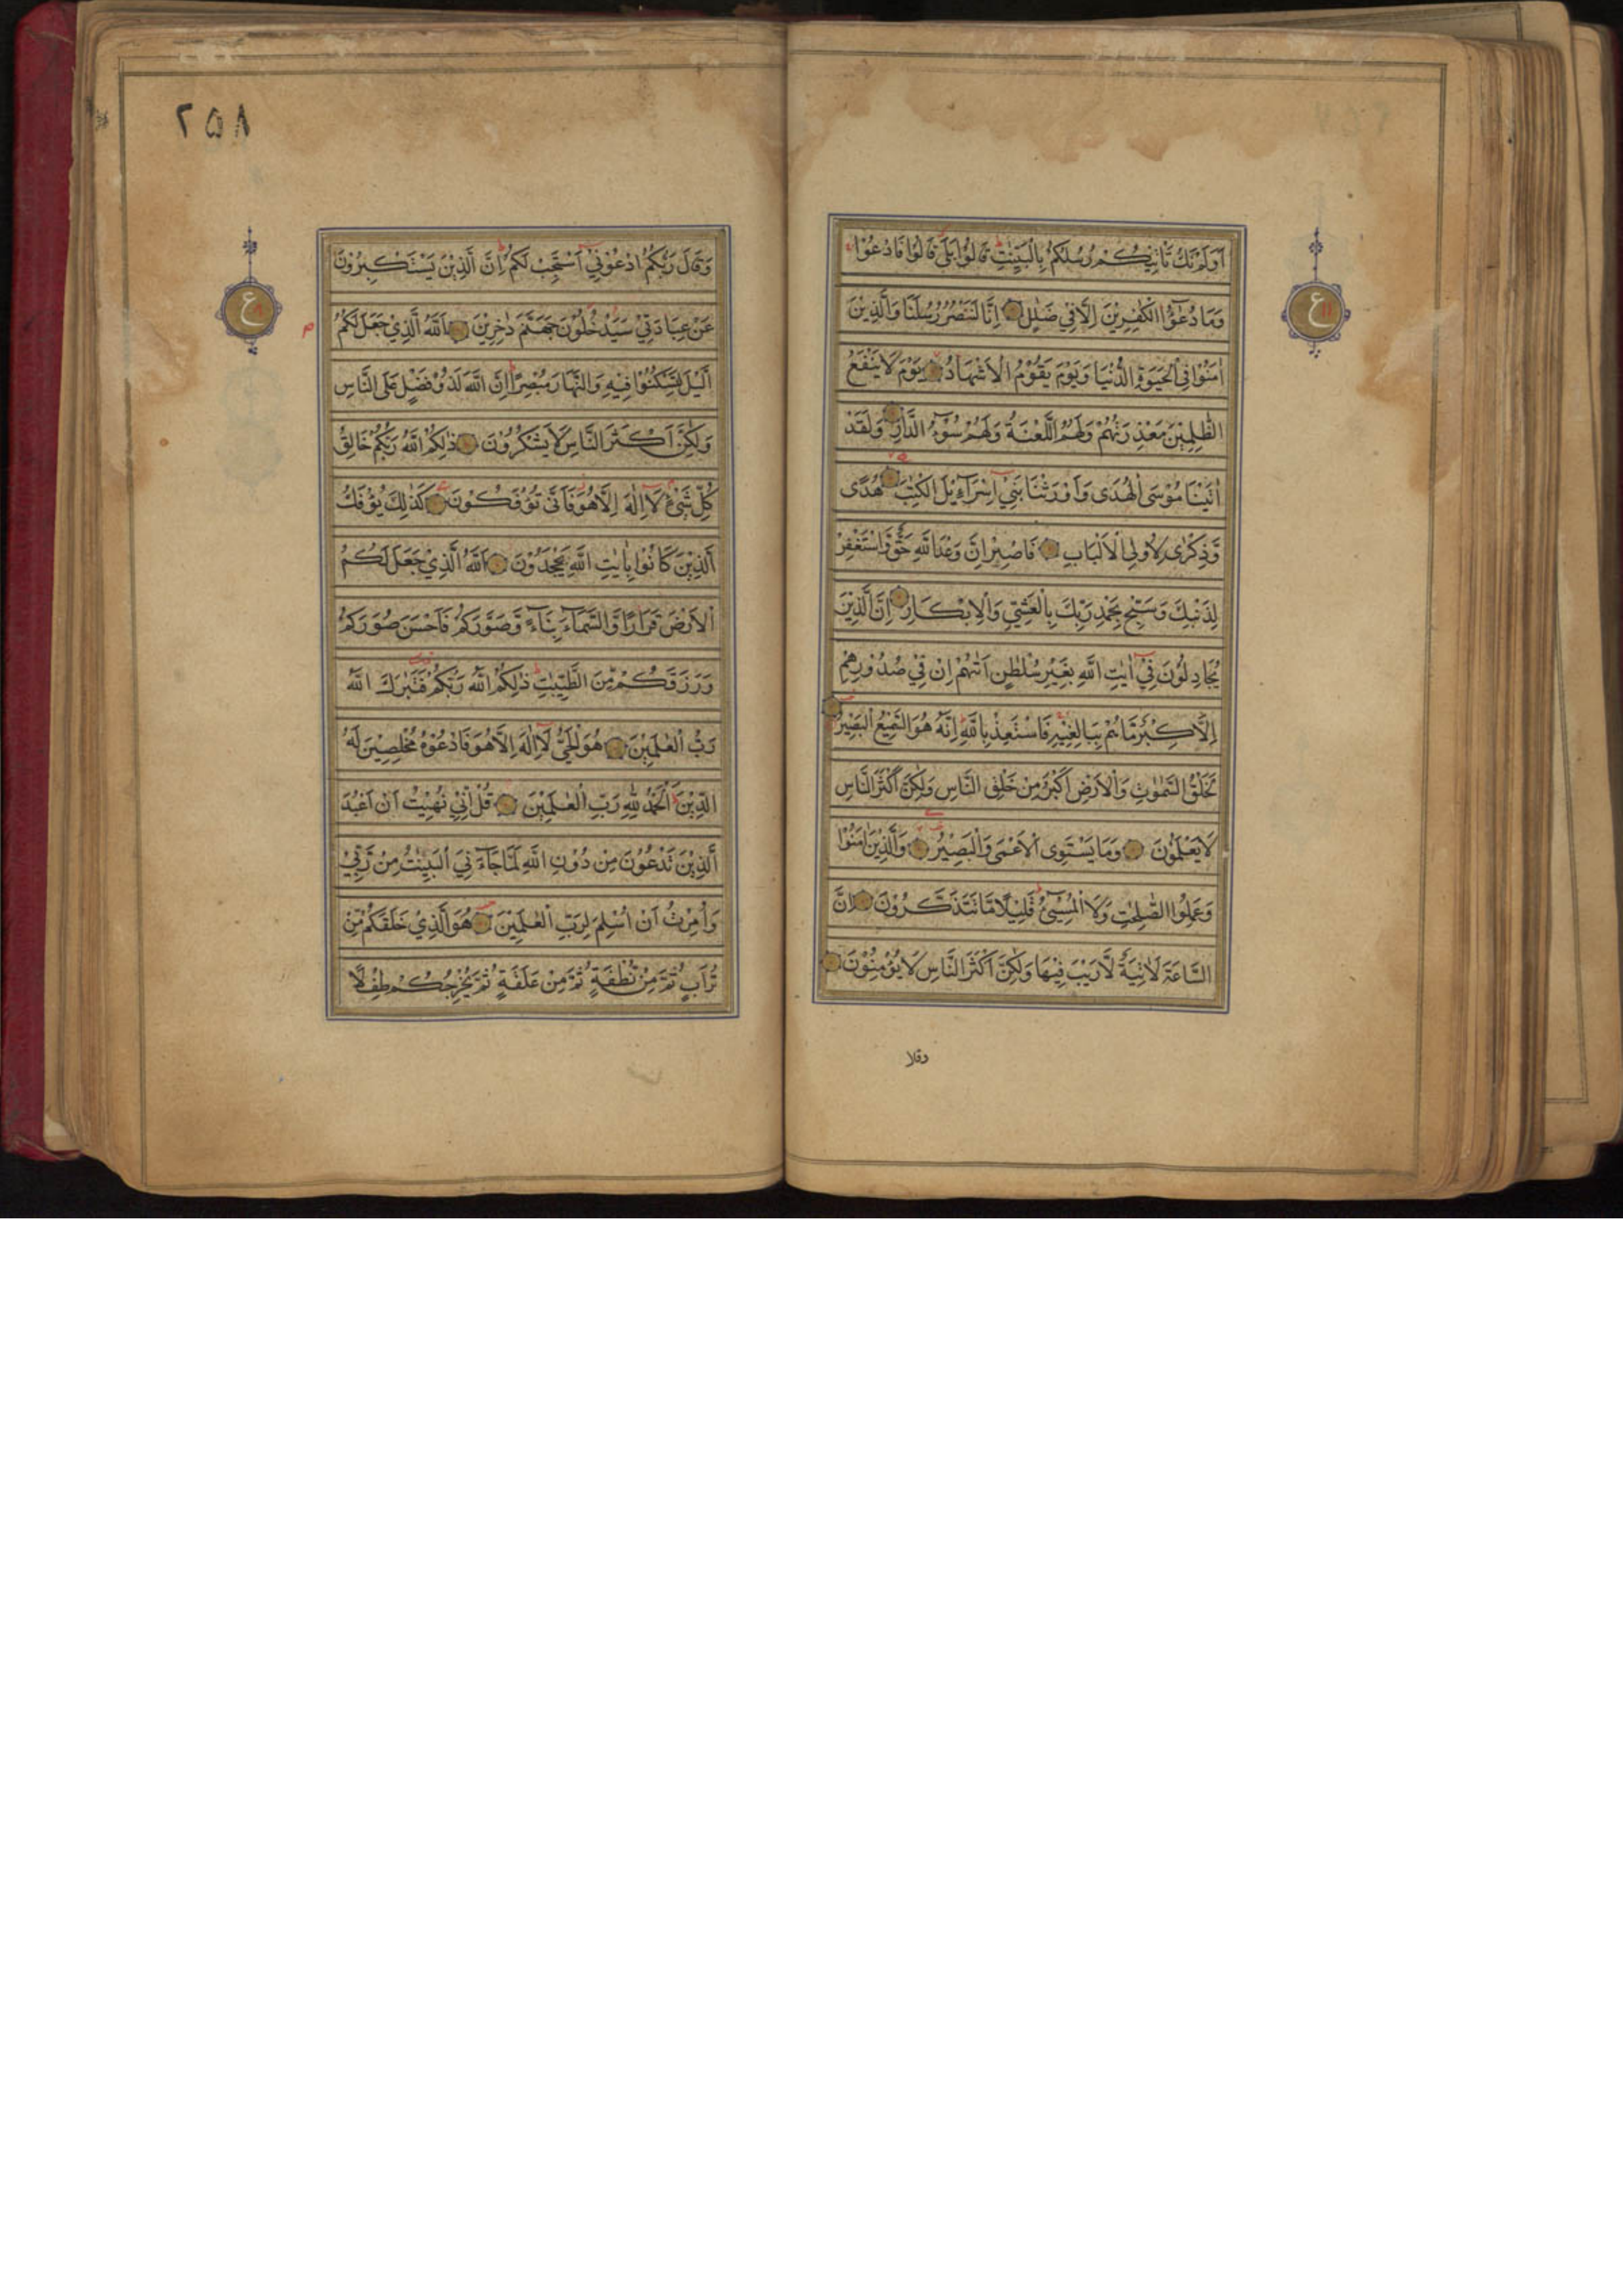 اَوَلَمْ تَكُ تَاْتِيْكُمْ رُسُلُكُمْ بِالْبَيِّنٰتِ قَالُوْا بَلٰى قَالُوْا فَادْعُوْا
وَمَا دُعٰٓؤُا الْكٰفِرِيْنَ اِلَّا فِيْ ضَلٰلٍ اِنَّا لَنَنْصُرُ رُسُلَنَا وَالَّذِيْنَ
اٰمَنُوْا فِي الْحَيٰوةِ الدُّنْيَا وَيَوْمَ يَقُوْمُ الْاَشْهَادُ يَوْمَ لَا يَنْفَعُ
الظّٰلِمِيْنَ مَعْذِرَتُهُمْ وَلَهُمُ اللَّعْنَةُ وَلَهُمْ سُوْٓءُ الدَّارِ وَلَقَدْ
اٰتَيْنَا مُوْسَى الْهُدٰى وَاَوْرَثْنَا بَنِيْٓ اِسْرَآءِيْلَ الْكِتٰبَ هُدًى
وَّذِكْرٰى لِاُولِي الْاَلْبَابِ فَاصْبِرْ اِنَّ وَعْدَ اللّٰهِ حَقٌّ وَّاسْتَغْفِرْ
لِذَنْبِكَ وَسَبِّحْ بِحَمْدِ رَبِّكَ بِالْعَشِيِّ وَالْاِبْكَارِ اِنَّ الَّذِيْنَ
يُجَادِلُوْنَ فِيْٓ اٰيٰتِ اللّٰهِ بِغَيْرِ سُلْطٰنٍ اَتٰىهُمْ اِنْ فِيْ صُدُوْرِهِمْ
اِلَّا كِبْرٌ مَّا هُمْ بِبَالِغِيْهِ فَاسْتَعِذْ بِاللّٰهِ اِنَّهٗ هُوَ السَّمِيْعُ الْبَصِيْرُ
لَخَلْقُ السَّمٰوٰتِ وَالْاَرْضِ اَكْبَرُ مِنْ خَلْقِ النَّاسِ وَلٰكِنَّ اَكْثَرَ النَّاسِ
لَا يَعْلَمُوْنَ وَمَا يَسْتَوِى الْاَعْمٰى وَالْبَصِيْرُ وَالَّذِيْنَ اٰمَنُوْا
وَعَمِلُوا الصّٰلِحٰتِ وَلَا الْمُسِيْٓئُ قَلِيْلًا مَّا تَتَذَكَّرُوْنَ اِنَّ
السَّاعَةَ لَاٰتِيَةٌ لَّا رَيْبَ فِيْهَا وَلٰكِنَّ اَكْثَرَ النَّاسِ لَا يُؤْمِنُوْنَ
وقلا
ع
۲۵۸
وَقَالَ رَبُّكُمُ ادْعُوْنِيْٓ اَسْتَجِبْ لَكُمْ اِنَّ الَّذِيْنَ يَسْتَكْبِرُوْنَ
عَنْ عِبَادَتِيْ سَيَدْخُلُوْنَ جَهَنَّمَ دٰخِرِيْنَ اَللّٰهُ الَّذِيْ جَعَلَ لَكُمُ
الَّيْلَ لِتَسْكُنُوْا فِيْهِ وَالنَّهَارَ مُبْصِرًا اِنَّ اللّٰهَ لَذُوْ فَضْلٍ عَلَى النَّاسِ
وَلٰكِنَّ اَكْثَرَ النَّاسِ لَا يَشْكُرُوْنَ ذٰلِكُمُ اللّٰهُ رَبُّكُمْ خَالِقُ
كُلِّ شَيْءٍ لَآ اِلٰهَ اِلَّا هُوَ فَاَنّٰى تُؤْفَكُوْنَ كَذٰلِكَ يُؤْفَكُ
الَّذِيْنَ كَانُوْا بِاٰيٰتِ اللّٰهِ يَجْحَدُوْنَ اَللّٰهُ الَّذِيْ جَعَلَ لَكُمُ
الْاَرْضَ قَرَارًا وَّالسَّمَآءَ بِنَآءً وَّصَوَّرَكُمْ فَاَحْسَنَ صُوَرَكُمْ
وَرَزَقَكُمْ مِّنَ الطَّيِّبٰتِ ذٰلِكُمُ اللّٰهُ رَبُّكُمْ فَتَبٰرَكَ اللّٰهُ
رَبُّ الْعٰلَمِيْنَ هُوَ الْحَيُّ لَآ اِلٰهَ اِلَّا هُوَ فَادْعُوْهُ مُخْلِصِيْنَ لَهُ
الدِّيْنَ اَلْحَمْدُ لِلّٰهِ رَبِّ الْعٰلَمِيْنَ قُلْ اِنِّيْ نُهِيْتُ اَنْ اَعْبُدَ
الَّذِيْنَ تَدْعُوْنَ مِنْ دُوْنِ اللّٰهِ لَمَّا جَآءَنِيَ الْبَيِّنٰتُ مِنْ رَّبِّيْ
وَاُمِرْتُ اَنْ اُسْلِمَ لِرَبِّ الْعٰلَمِيْنَ هُوَ الَّذِيْ خَلَقَكُمْ مِّنْ
تُرَابٍ ثُمَّ مِنْ نُّطْفَةٍ ثُمَّ مِنْ عَلَقَةٍ ثُمَّ يُخْرِجُكُمْ طِفْلًا
ع